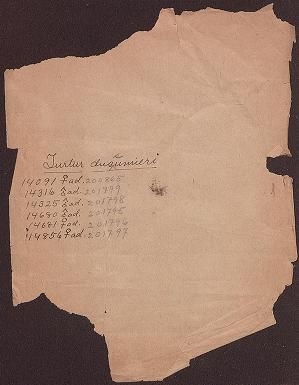 Turtur duğŭmieri
14091 ♀ad. 200845
14316 ♂ad. 201799
14325 ♂ad. 201798
14680 ♂ad. 201795
14681 ♀ad. 201796
14854 ♀ad. 201797